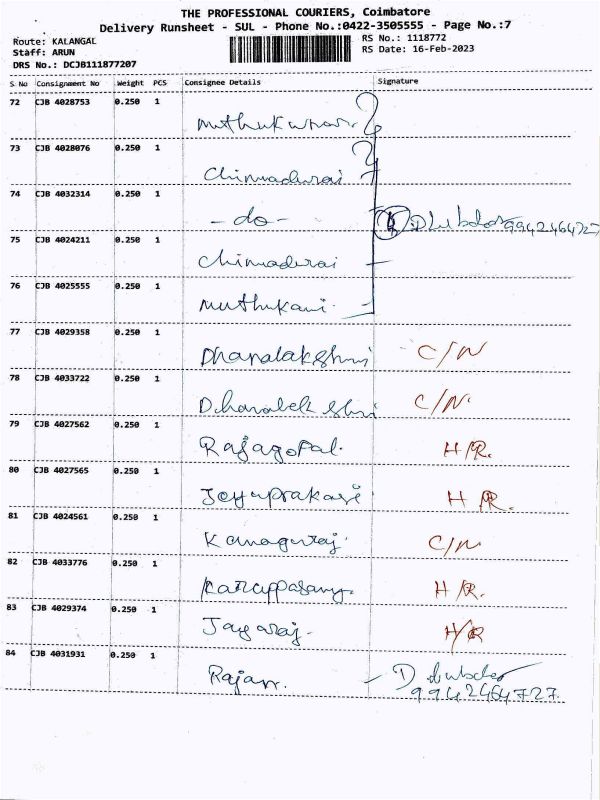 THE PROFESSIONAL COURIERS, Coimbatore
Delivery Runsheet - SUL - Phone No.:0422-3505555 - Page No.:7
Route: KALANGAL
RS No.: 1118772
Staff: ARUN
RS Date: 16-Feb-2023
DRS No.: DCJB111877207
S No Consignment No Weight PCS Consignee Details Signature
72 CJB 4028753 0.250 1
73 CJB 4028076 0.250 1 Chinnadurai
74 CJB 4032314 0.250 1 - do - 9942464727
75 CJB 4024211 0.250 1 Chinnadurai
76 CJB 4025555 0.250 1 Muthukani
77 CJB 4029358 0.250 1 Dhanalakshmi C/N
78 CJB 4033722 0.250 1 C/N.
79 CJB 4027562 0.250 1 Rajagopal. H/R.
80 CJB 4027565 0.250 1 H/R.
81 CJB 4024561 0.250 1 Kanagaraj. C/N.
82 CJB 4033776 0.250 1 Karuppasamy. H/R.
83 CJB 4029374 0.250 1 Jayaraj- H/R
84 CJB 4031931 0.250 1 Rajan.
9942464727.